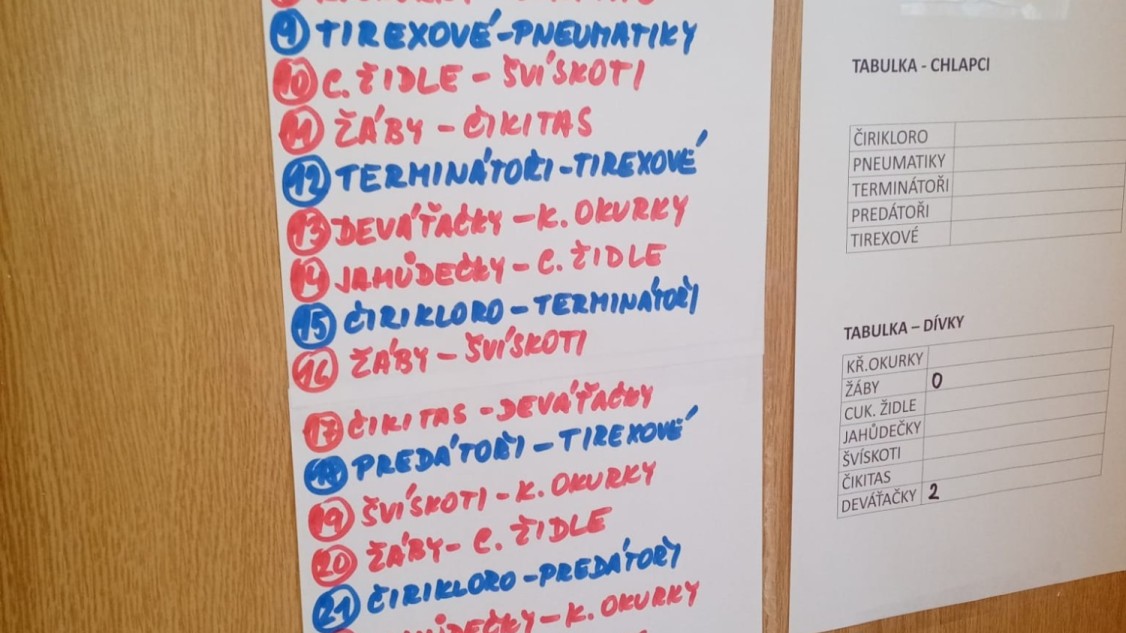 9 TIREXOVÉ-PNEUMATIKY
10 C. ŽIDLE - ŠVÍSKOTI
11 ŽÁBY - ČIKITAS
12 TERMINÁTOŘI-TIREXOVÉ
13 DEVÁŤAČKY - K. OKURKY
14 JAHŮDEČKY - C. ŽIDLE
15 ČIRIKLORO - TERMINÁTOŘI
16 ŽÁBY - ŠVÍSKOTI
17 ČIKITAS - DEVÁŤAČKY
18 PREDÁTOŘI - TIREXOVÉ
19 ŠVÍSKOTI - K. OKURKY
20 ŽÁBY - C. ŽIDLE
21 ČIRIKLORO - PREDÁTOŘI
- K. OKURKY
TABULKA - CHLAPCI
ČIRIKLORO
PNEUMATIKY
TERMINÁTOŘI
PREDÁTOŘI
TIREXOVÉ
TABULKA – DÍVKY
KŘ.OKURKY
ŽÁBY 0
CUK. ŽIDLE
JAHŮDEČKY
ŠVÍSKOTI
ČIKITAS
DEVÁŤAČKY 2